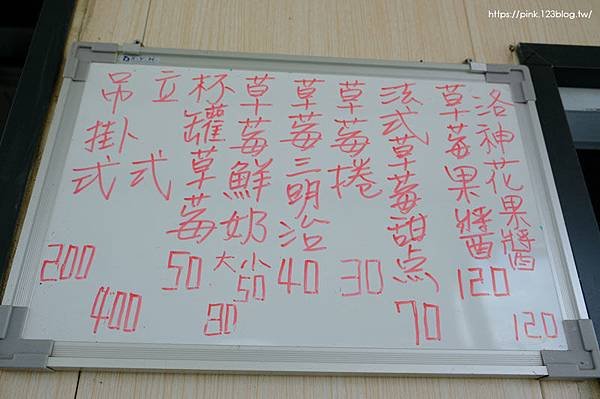 https://pink.123blog.tw/
洛神花果醬
120
草莓果醬
120
法式草莓甜点
70
草莓捲
30
草莓三明治
40
草莓鮮奶
大 小
80 50
杯罐草莓
50
立式
400
吊掛式
200